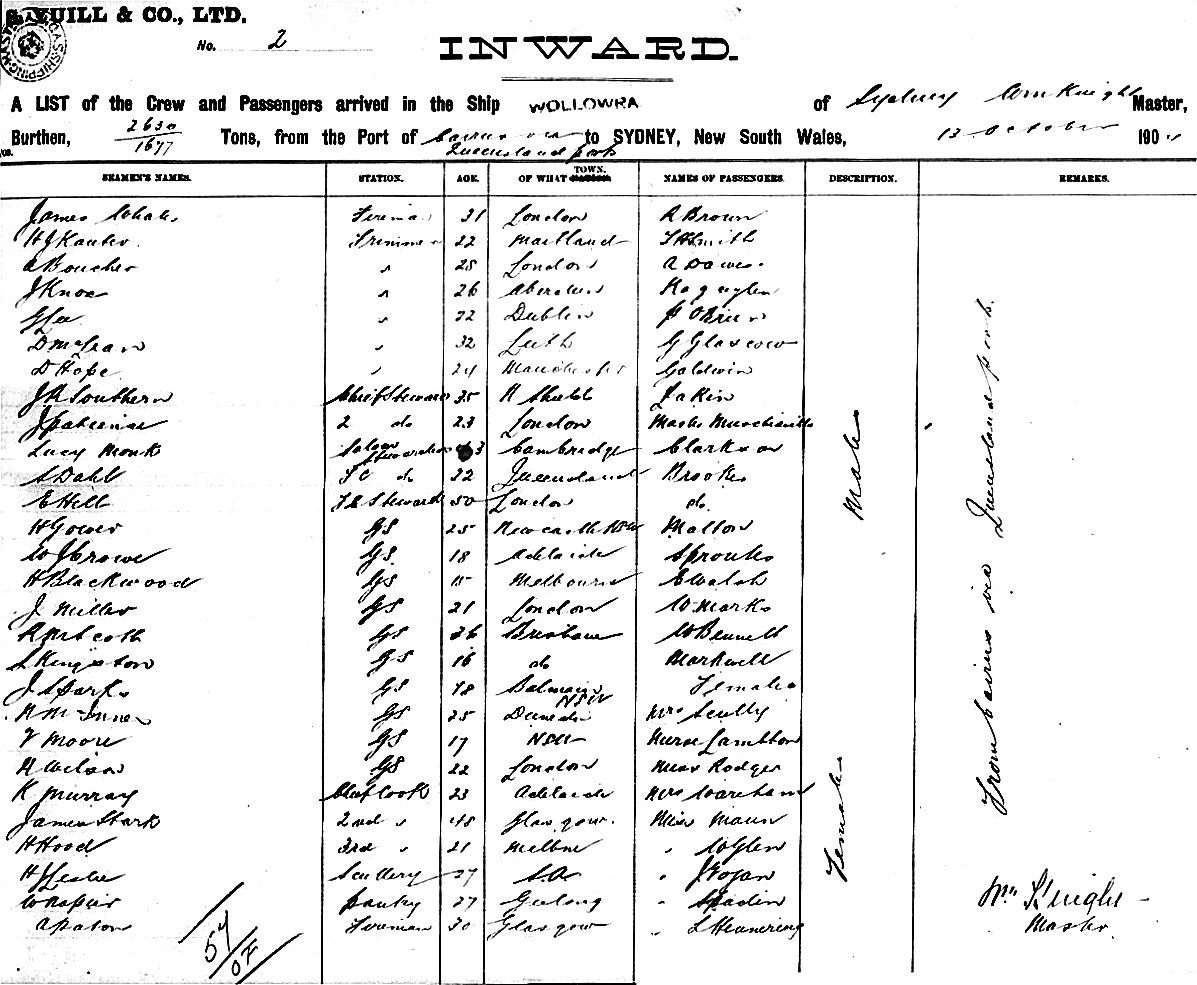 YUILL & CO., LTD.
No. 2
INWARD.
A LIST of the Crew and Passengers arrived in the Ship WOLLOWRA of Sydney Wm Knight Master,
Burthen, 2630/1677 Tons, from the Port of Cairns via Queensland ports to SYDNEY, New South Wales, 13 October 190
SEAMEN'S NAMES. STATION. AGE. OF WHAT TOWN. NAMES OF PASSENGERS. DESCRIPTION. REMARKS.
James Firema 31 London A Brown
H J Trimmer 22 Maitland Smith
A Boucher " 25 London A Dawes
J Knox " 26 Aberdeen
G Lee " 22 Dublin O'Brien
D McLean " 32 Leith G Glascow
D Hope " 24 Manchester Goldwin
J R Southern Chief Steward 35 Shield Jakin
J 2 do 23 London
Lucy Monk Saloon Cambridge Clarkson
S Dahl do 32 Queensland Brookes
E Hill Steward 50 London do.
H Gower GS 25 Newcastle NSW Malton
W J Crowe GS 18 Adelaide Sproules
H Blackwood GS Melbourne E Walsh
J Miller GS 21 London W Marks
GS 26 Brisbane W Bennett
S Kingston GS 16 do Markwell
J Sparks GS 18 Balmain NSW Female
GS 25 Dunedin Mrs Scully
V Moore GS 17 NSW Nurse Lambton
R Wilson GS 22 London Miss Rodger
K Murray Chief Cook 23 Adelaide Mrs Wareham
James Stark 2nd " 48 Glasgow. Miss Mann
H Hood 3rd " 21 Melbne " W Glen
H J Leslie Scullery 27 S.A. " J Fogan
W Napier Pantry 27 Geelong "
A Paton Fireman 30 Glasgow "
Male
Female
From Cairns via Queensland ports.
Wm Knight
Master
57/OF